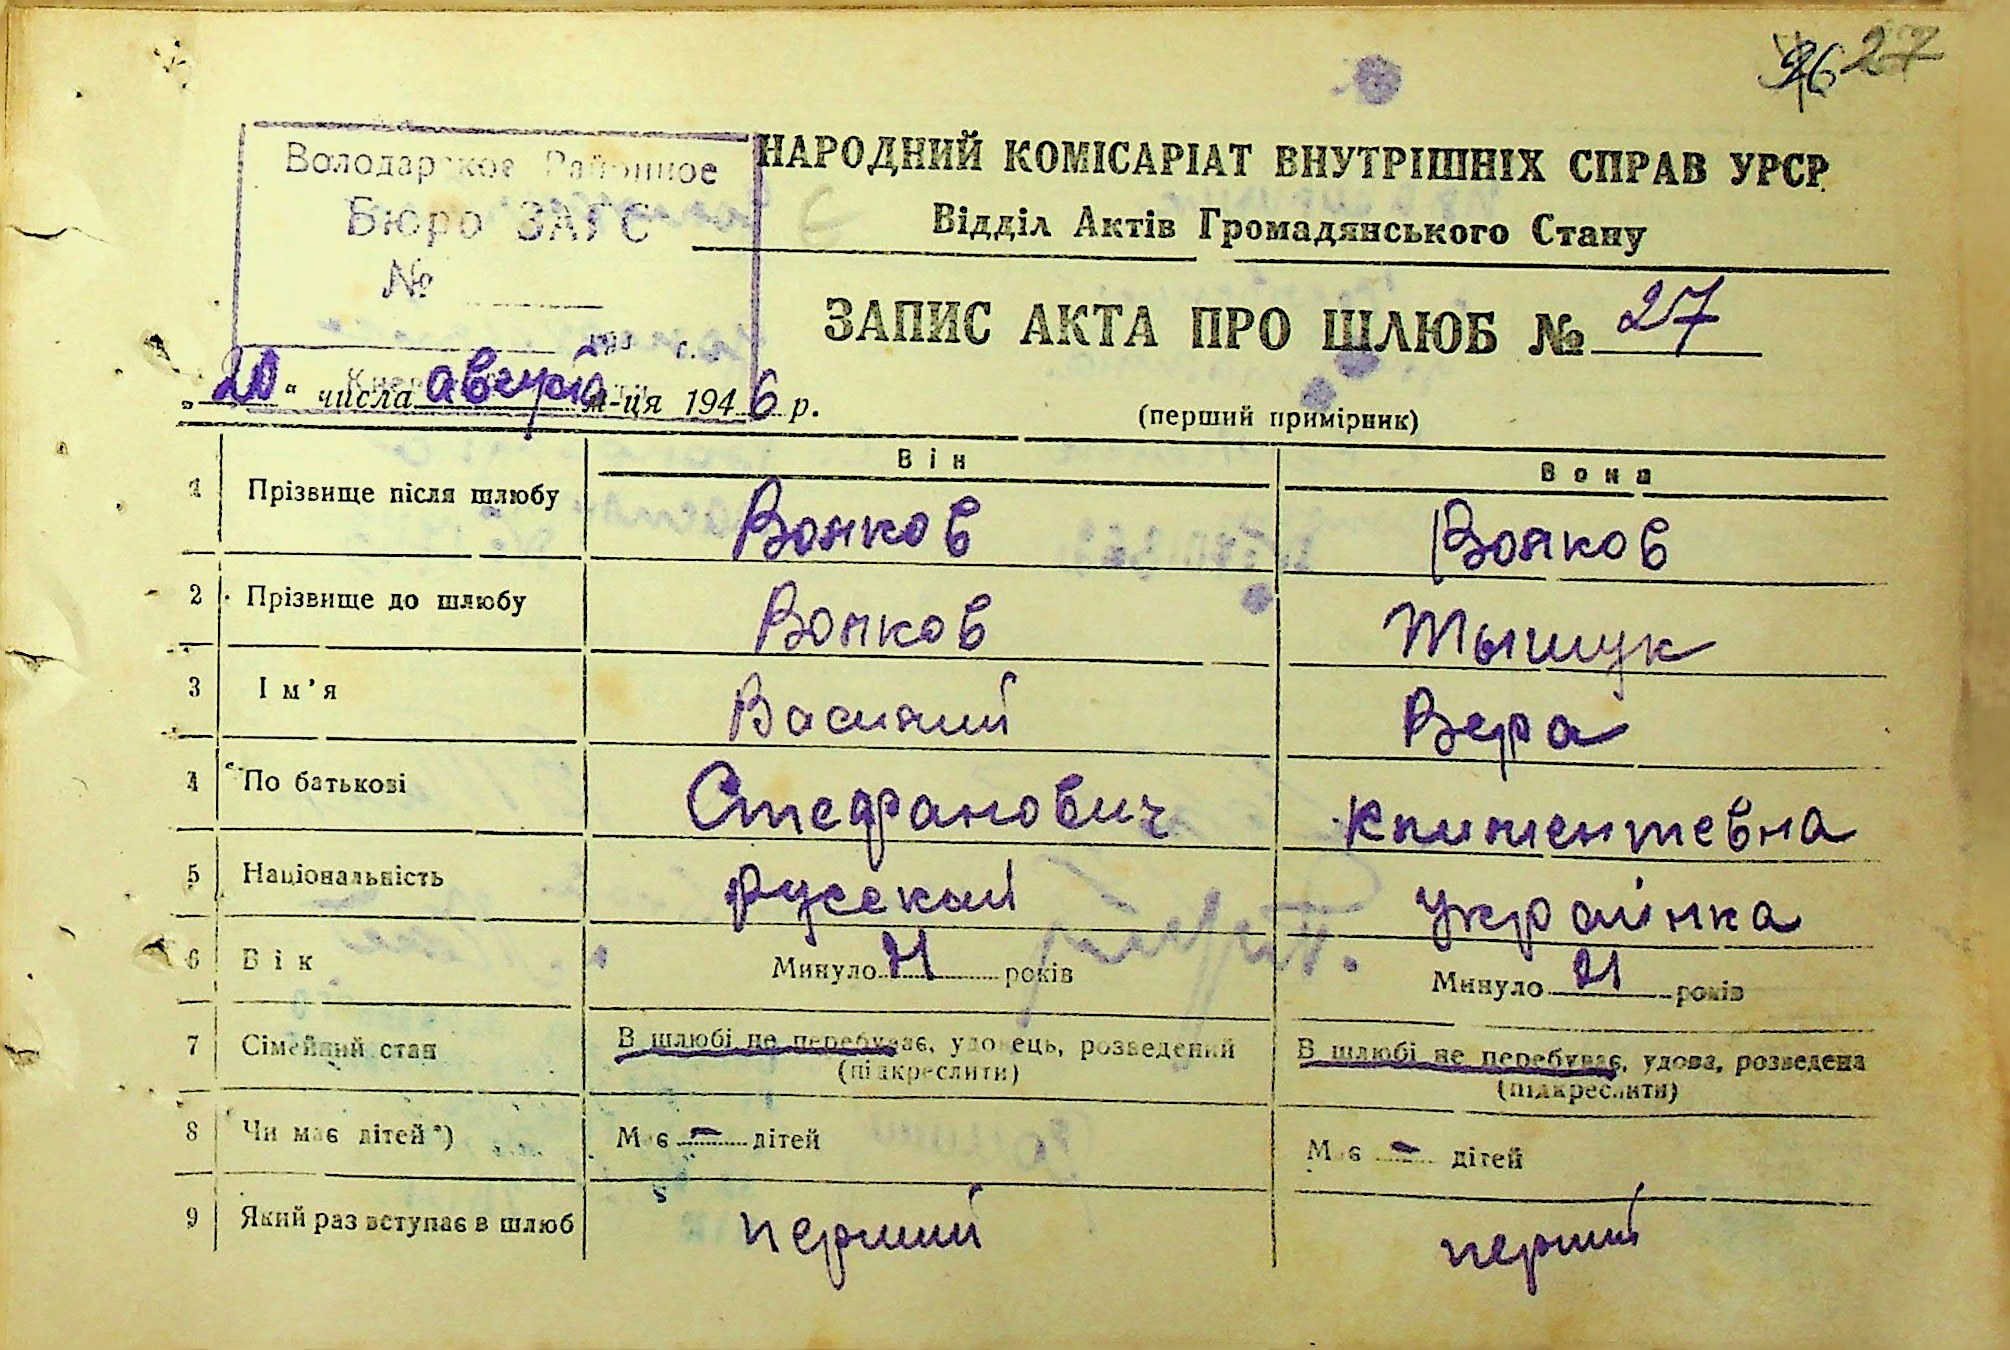 26 27
Володарское Районное
Бюро ЗАГС
№
НАРОДНИЙ КОМІСАРІАТ ВНУТРІШНІХ СПРАВ УРСР
Відділ Актів Громадянського Стану
ЗАПИС АКТА ПРО ШЛЮБ № 27
„20" числа августа м-ця 1946 р.
(перший примірник)
Він Вона
1 Прізвище після шлюбу Волков Волков
2 Прізвище до шлюбу Волков Тыщук
3 Ім'я Василий Вера
4 По батькові Стефанович Климентевна
5 Національність русский українка
6 Вік Минуло 21 років Минуло 21 років
7 Сімейний стан В шлюбі не перебуває, удовець, розведений В шлюбі не перебуває, удова, розведена
(підкреслити) (підкреслити)
8 Чи має дітей*) Має – дітей Має – дітей
9 Який раз вступає в шлюб перший перший